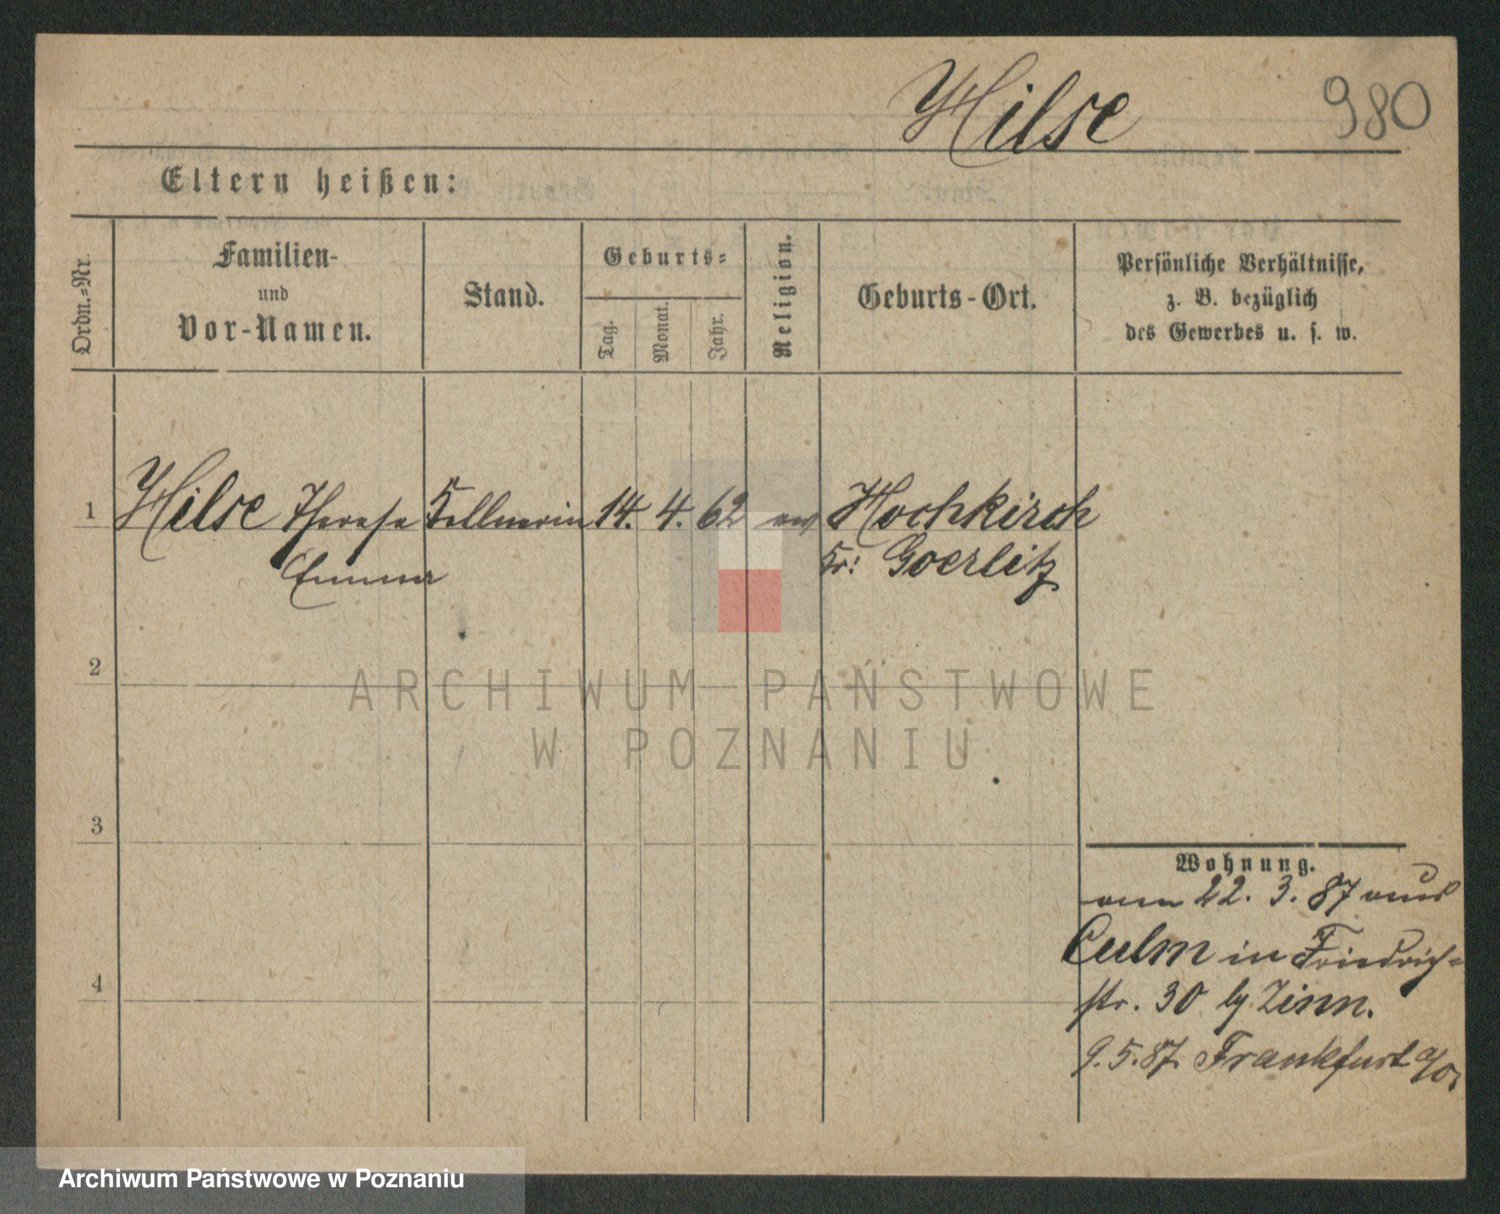 Hilse 980
Eltern heißen:
Ordn.-Nr.
Familien-
und
Vor-Namen.
Stand.
Geburts-
Tag.
Monat.
Jahr.
Religion.
Geburts-Ort.
Persönliche Verhältnisse,
z. B. bezüglich
des Gewerbes u. s. w.
1 Hilse Therese Kellnerin 14. 4. 62 ev Hochkirch
Emma Kr: Goerlitz
2
ARCHIWUM PAŃSTWOWE
W POZNANIU
3
Wohnung.
22. 3. 87 aus
Culm in Friedrich-
str. 30 by Zinn.
4
9.5.87. Frankfurt a/O.
Archiwum Państwowe w Poznaniu